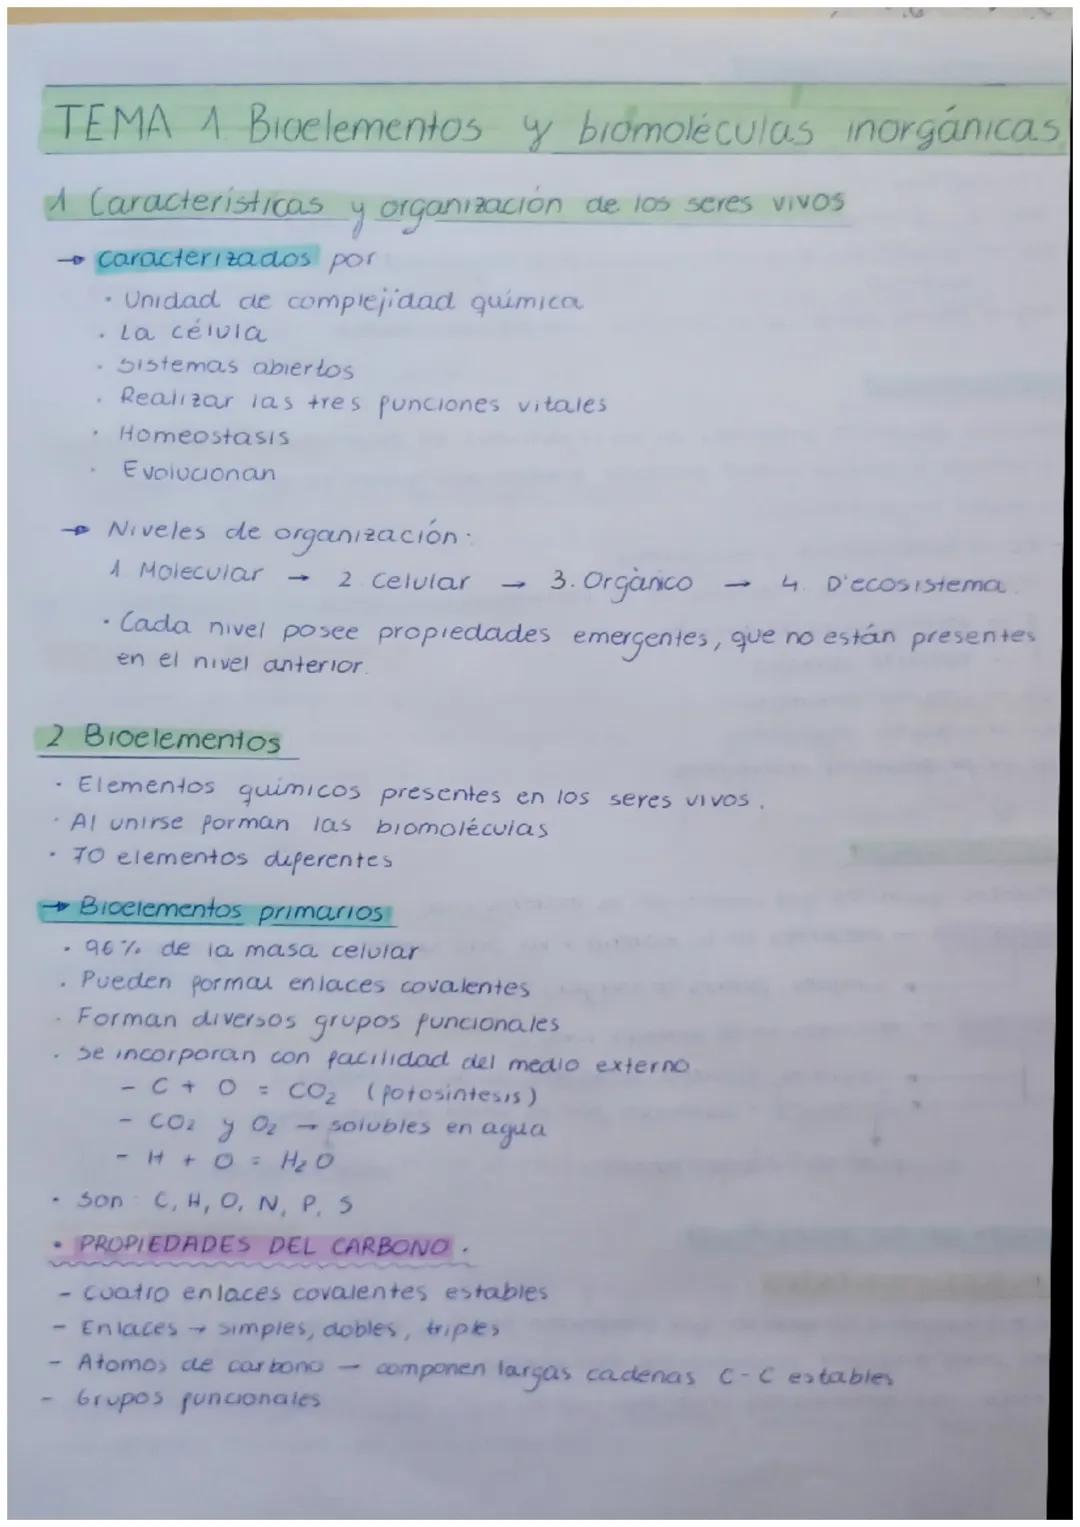 TEMA 1 Bioelementos y biomoléculas inorgánicas
1 Características y organización de los seres vivos
→ caracterizados por
· Unidad de complejidad química
· La célula
· Sistemas abiertos
· Realizar las tres funciones vitales
· Homeostasis
· Evolucionan
→ Niveles de organización:
1 Molecular → 2 Celular → 3. Orgànico → 4. D'ecosistema.
· Cada nivel posee propiedades emergentes, que no están presentes
en el nivel anterior.
2 Bioelementos
· Elementos químicos presentes en los seres vivos.
· Al unirse forman las biomoléculas
· 70 elementos diferentes
→ Bioelementos primarios:
· 96% de la masa celular
· Pueden formar enlaces covalentes
· Forman diversos grupos funcionales
· Se incorporan con facilidad del medio externo.
- C + O = CO₂ (fotosíntesis)
- CO₂ y O₂ → solubles en agua
- H + O = H₂O
· Son: C, H, O, N, P, S
• PROPIEDADES DEL CARBONO.
- Cuatro enlaces covalentes estables
- Enlaces → simples, dobles, triples
- Atomos de carbono — componen largas cadenas C-C estables
- Grupos funcionales